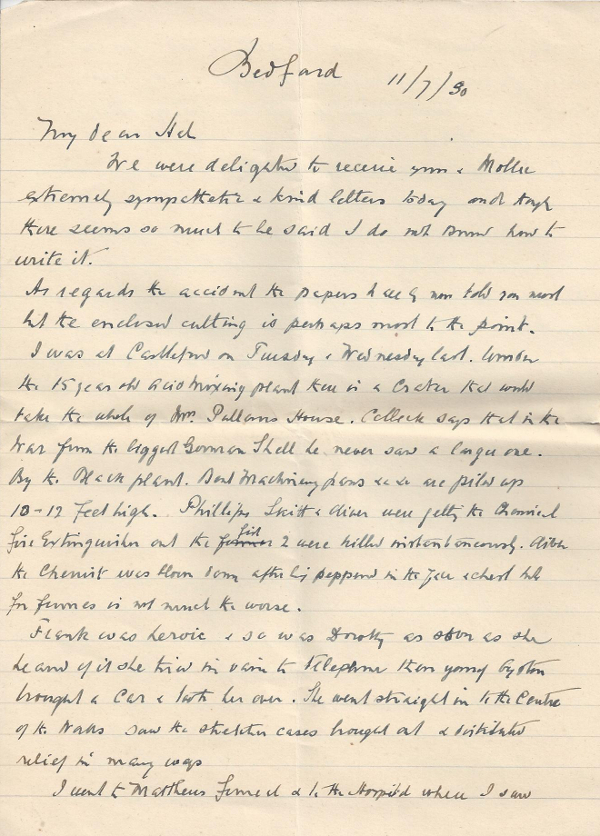 Bedford
11/7/30
My dear Hal
We were delighted to receive yours & Mollie
extremely sympathetic & kind letters today and though
there seems so much to be said I do not know how to
write it.
As regards the accident the papers have by now told you most
but the enclosed cutting is perhaps most to the point.
I was at Castleford on Tuesday & Wednesday last. Under
the 15 year old acid mixing plant there is a Crater that would
take the whole of Mrs. House. says that in the
War from the biggest German Shell he never saw a larger one.
By the Black plant. Bent Machinery pans &c &c are piled up
10-12 feet high. Phillips & Oliver were getting the Chemical
fire Extinguisher out the first 2 were killed instantaneously. Oliver
the Chemist was blown down after being peppered in the face & chest but
for is not much the worse.
Frank was heroic & so was Dorothy as soon as she
heard of it she tried in vain to Telephone then young
brought a Car & took her over. She went straight in to the Centre
of the Works saw the stretcher cases brought out & distributed
relief in many ways
I went to Matthews funeral & to the Hospital where I saw